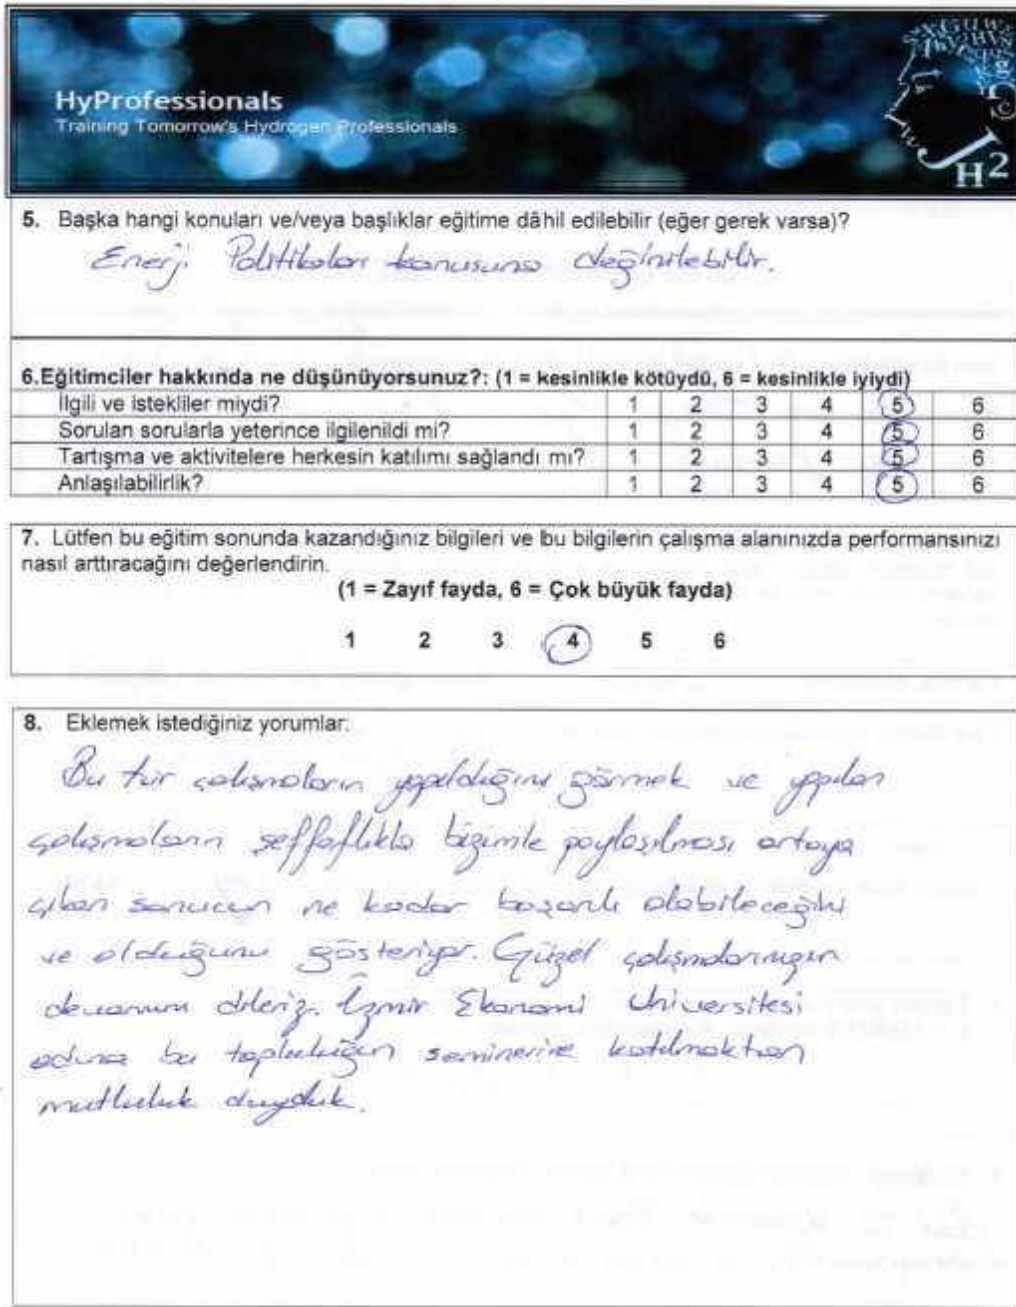 HyProfessionals
Training Tomorrow's Hydrogen Professionals
H2
5. Başka hangi konuları ve/veya başlıklar eğitime dâhil edilebilir (eğer gerek varsa)?
Enerji Politikaları konusuna değinilebilir.
6.Eğitimciler hakkında ne düşünüyorsunuz?: (1 = kesinlikle kötüydü, 6 = kesinlikle iyiydi)
İlgili ve istekliler miydi? 1 2 3 4 5 6
Sorulan sorularla yeterince ilgilenildi mi? 1 2 3 4 5 6
Tartışma ve aktivitelere herkesin katılımı sağlandı mı? 1 2 3 4 5 6
Anlaşılabilirlik? 1 2 3 4 5 6
7. Lütfen bu eğitim sonunda kazandığınız bilgileri ve bu bilgilerin çalışma alanınızda performansınızı
nasıl arttıracağını değerlendirin.
(1 = Zayıf fayda, 6 = Çok büyük fayda)
1 2 3 4 5 6
8. Eklemek istediğiniz yorumlar:
Bu tür çalışmaların yapıldığını görmek ve yapılan
çalışmaların şeffaflıkla bizimle paylaşılması ortaya
çıkan sonucun ne kadar başarılı olabileceğini
ve olduğunu gösteriyor. Güzel çalışmalarınızın
devamını dileriz. İzmir Ekonomi Üniversitesi
adına bu topluluğun seminerine katılmaktan
mutluluk duyduk.